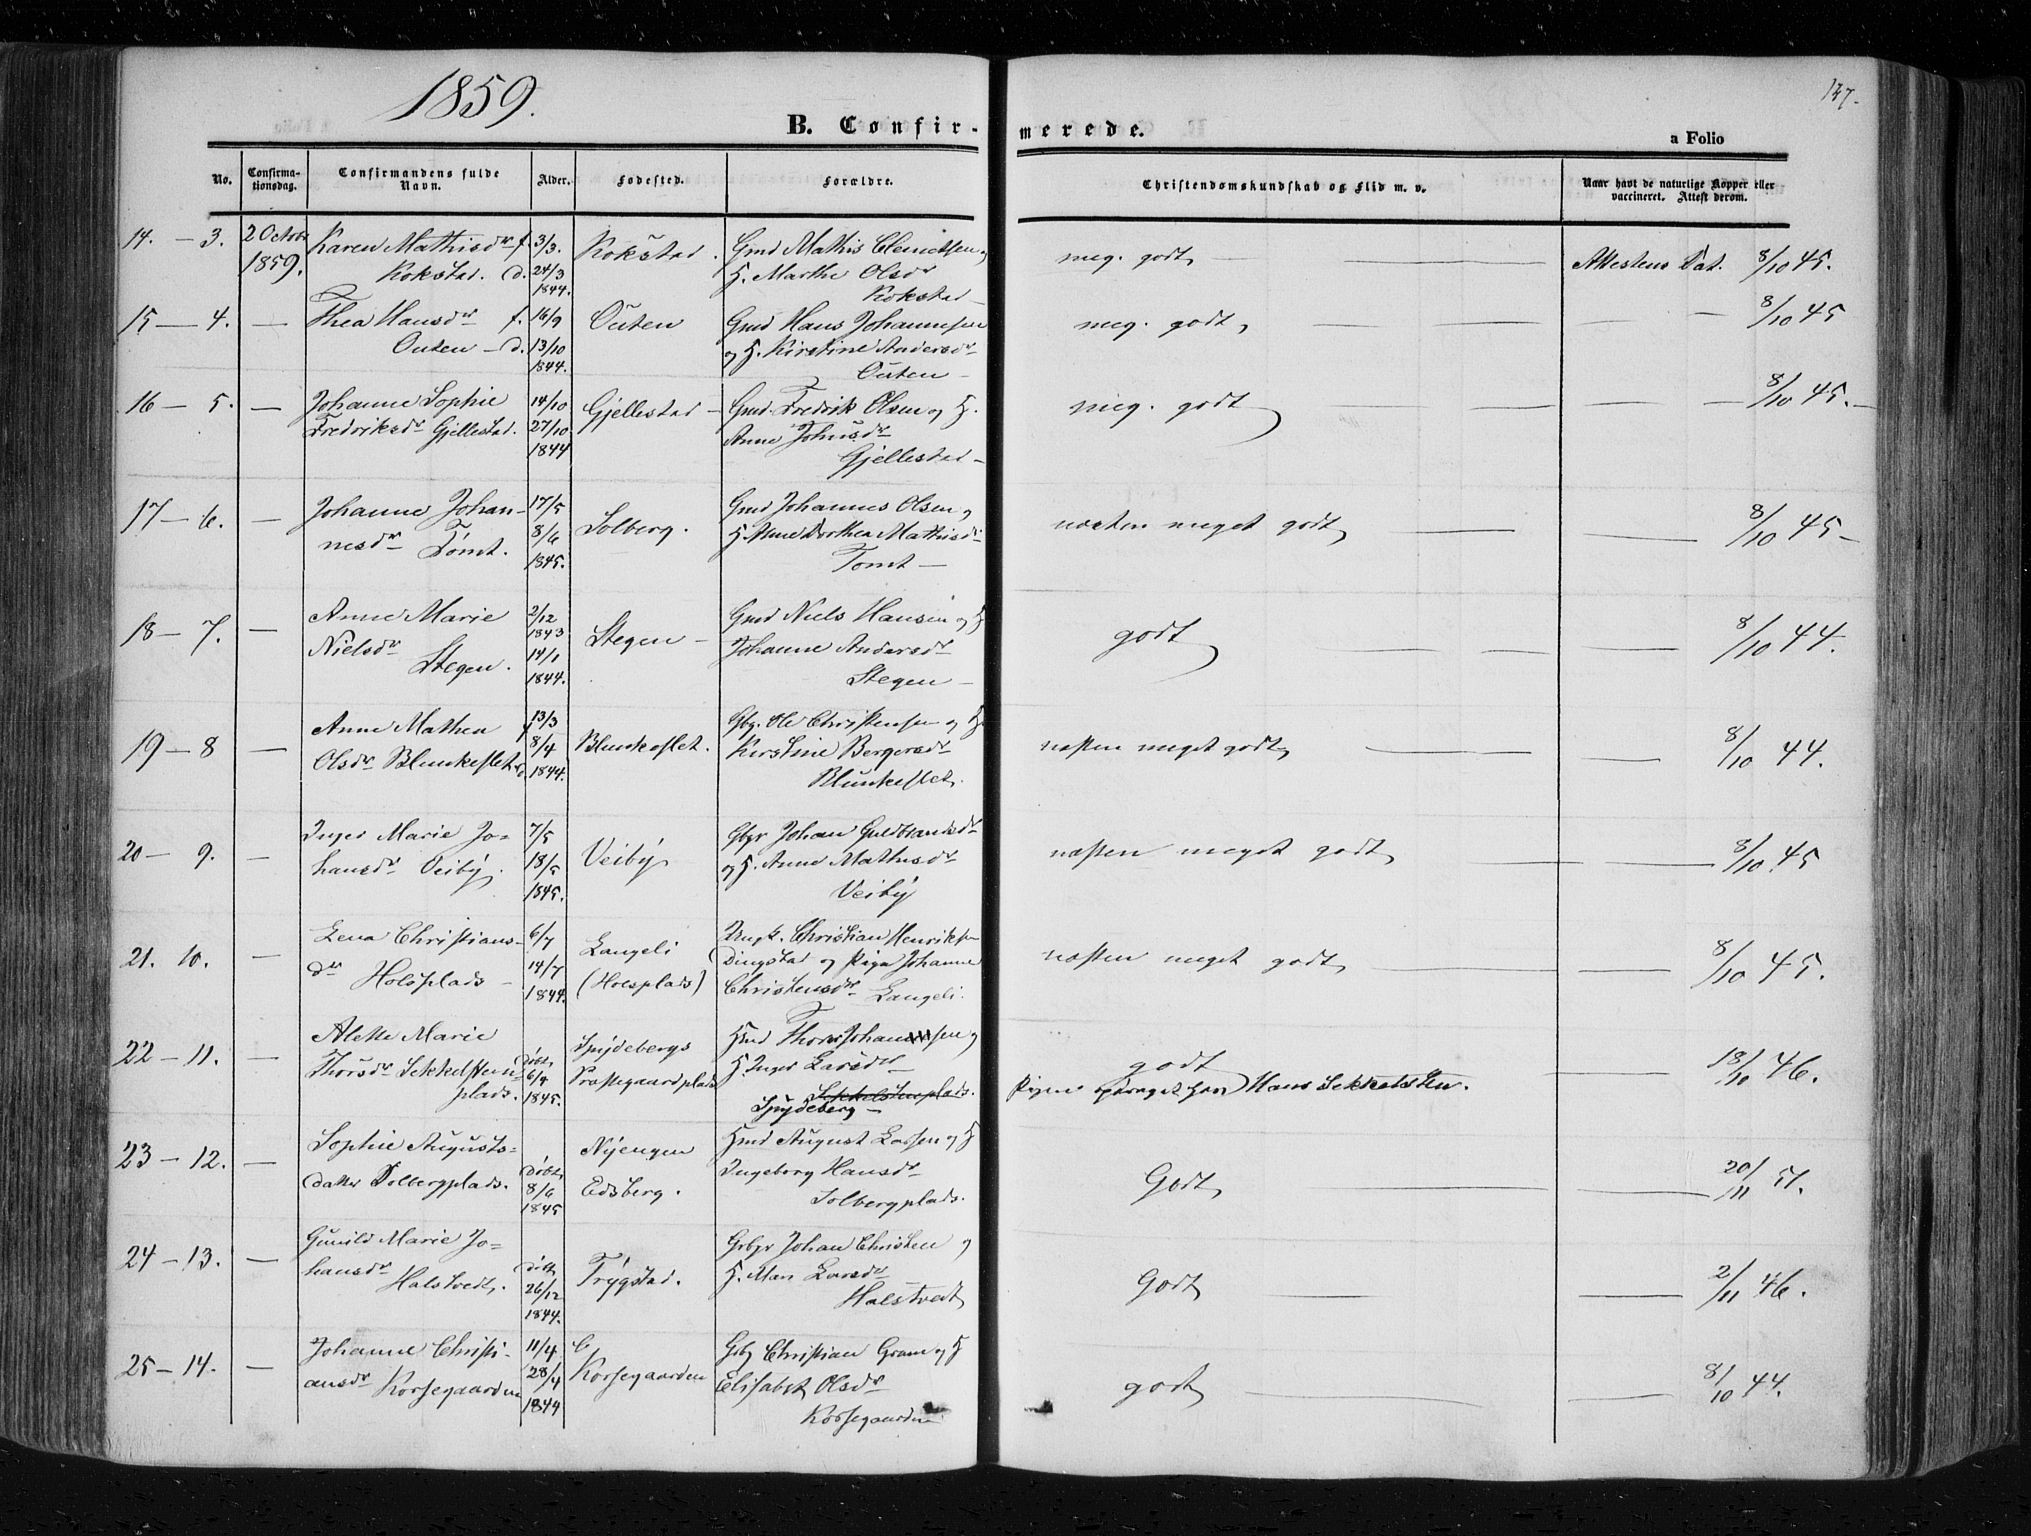 1859.
147.
B. Confir-
merede.
a Folio
No.
Confirma-
tionsdag.
Confirmandens fulde
Navn.
Alder.
Fødested.
Forældre.
Christendomskundskab og Flid m. v.
Naar havt de naturlige Kopper eller
vaccineret. Attest derom.
14. — 3. 2 Octobr Karen Mathisdr f. 3/3. Kokstad. Gmd Mathis
1859. Kokstad. d. 24/3 H. Marthe Olsdr meg. godt — Attestens Dat. 8/10 45.
1844. Kokstad —
15 — 4. — Thea Hansdr f. 16/9 Outen Gmd Hans Johannsen meg. godt, — — — — 8/10 45
Outen — d. 13/10 og H. Kirstine Andersdr
1844. Outen —
16 — 5. — Johanne Sophie 14/10 Gjellestad — Gmd. Fredrik Olsen og H. meg. godt — — — — 8/10 45. —
Fredriksdr Gjellestad. 27/10 Anne
1844 Gjellestad —
17 — 6. — Johanne Johan- 17/5 Solberg. Gmd Johannes Olsen og næsten meget godt, — — 8/10 45 —
nesdr Tomt. 8/6 H. Anne Dorthea Mathisdr
1845. Tomt —
18 — 7. — Anne Marie 2/12 Stegen — Gmd Niels Hansen og H godt — — — 8/10 44.
Nielsdr 1843 Johanne Andersdr
Stegen. 14/1 Stegen —
1844.
19 — 8 — Anne Mathea f 13/3 Blunkeflet. Gbg. Ole Christensen og H. næsten meget godt, — — 8/10 44.
Olsdr Blunkeflet d 8/4 Kirstine Bergersdr
1844. Blunkeflet.
20 — 9. — Inger Marie Jo= 7/5 Veiby Gbgr Johan Guldbrandsdr næsten meget godt, — 8/10 45
hansdr Veiby. 18/5 og H. Anne Mathisdr
1845. Veiby
21. 10. — Lena Christians- 6/7 Langeli Ungk. Christian Henriksen næsten meget godt, — — 8/10 45.
dr Holsplads — 14/7 (Holsplads) Dingstad og Pige Johanne
1844. Christensdr Langeli.
22 — 11. — Alette Marie Døbt, Spydebergs Hmd Thor Johansen og godt — 13/10 46.
Thorsdr Sekkelsten= 6/4 Præstegaardplads H. Inger Larsdr Pigen opdraget hos Hans Sekkelsten.
plads. 1845. Sekkelstenplads.
Spydeberg —
23 — 12. — Sophie Augusts= Døbt, Nyengen Hmd August Larsen og H Godt, — — 20/11 51.
datter Solbergplads. 8/6 Edsberg. Ingeborg Hansdr
1845 Solbergplads.
24 — 13. — Gunild Marie Jo= Døbt Trygstad. Gbgr Johan Christen og Godt — — — 2/11 46.
hansdr 26/12 H. Mari Larsdr
Halstvedt. 1844. Halstvedt,
25 — 14. — Johanne Christi- 11/4 Korsegaarden Gbg Christian Gram og H godt, — — — 8/10 44.
ansdr Korsegaarden 28/4 Elisabet Olsdr
1844 Korsegaarden